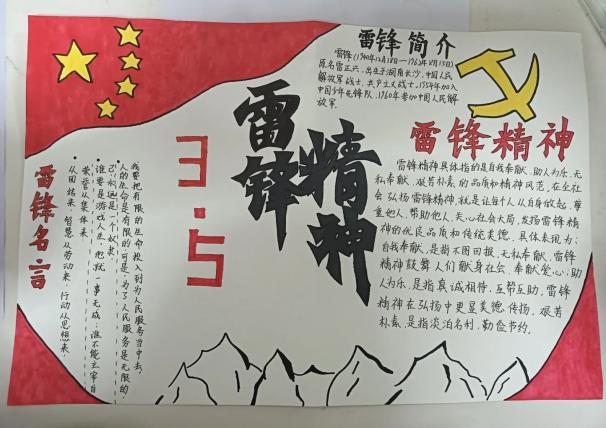 雷锋简介
雷锋(1940年12月18日—1962年8月15日)
原名雷正兴,出生于湖南长沙,中国人民
解放军战士,共产主义战士,1954年加入
中国少年先锋队,1960年参加中国人民解
放军.
雷锋
精神
3·5
雷锋精神
雷锋精神具体指的是自我奉献,助人为乐,无
私奉献,艰苦朴素的品质和精神风范,在全社
会弘扬雷锋精神,就是让每个人从自身做起,尊
重他人,帮助他人,关心社会大局,发扬雷锋精
神的优良品质和传统美德.具体表现为:
自我奉献,是指不图回报、无私奉献、雷锋
精神鼓舞人们献身社会、奉献爱心;助
人为乐,是指真诚相待、互帮互助,雷锋
精神在弘扬中更显美德传扬,艰苦
朴素,是指淡泊名利,勤俭节约.
雷锋名言
我要把有限的生命投入到为人民服务当中去,
人的生命是有限的,可是,为了人民服务是无限的,
己,永远是一个奴隶.
谁要是游戏人生,他就一事无成;谁不能主宰自
荣誉从集体来.
从团结来,智慧从劳动来,行动从思想来,